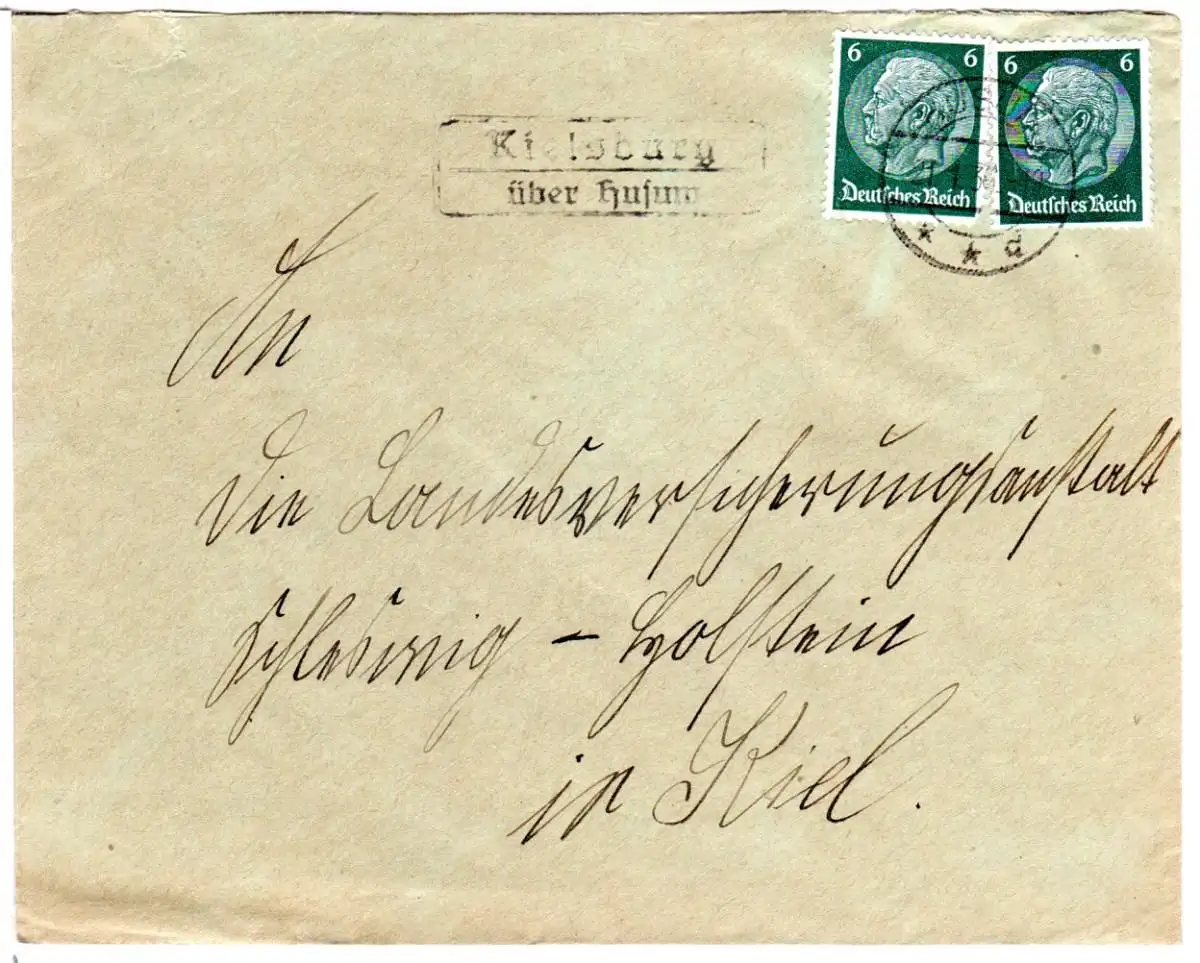 Kielsburg
über Husum
6 6
Deutsches Reich
6 6
Deutsches Reich
d
An
die Landesversicherungsanstalt
Schleswig - Holstein
in Kiel.